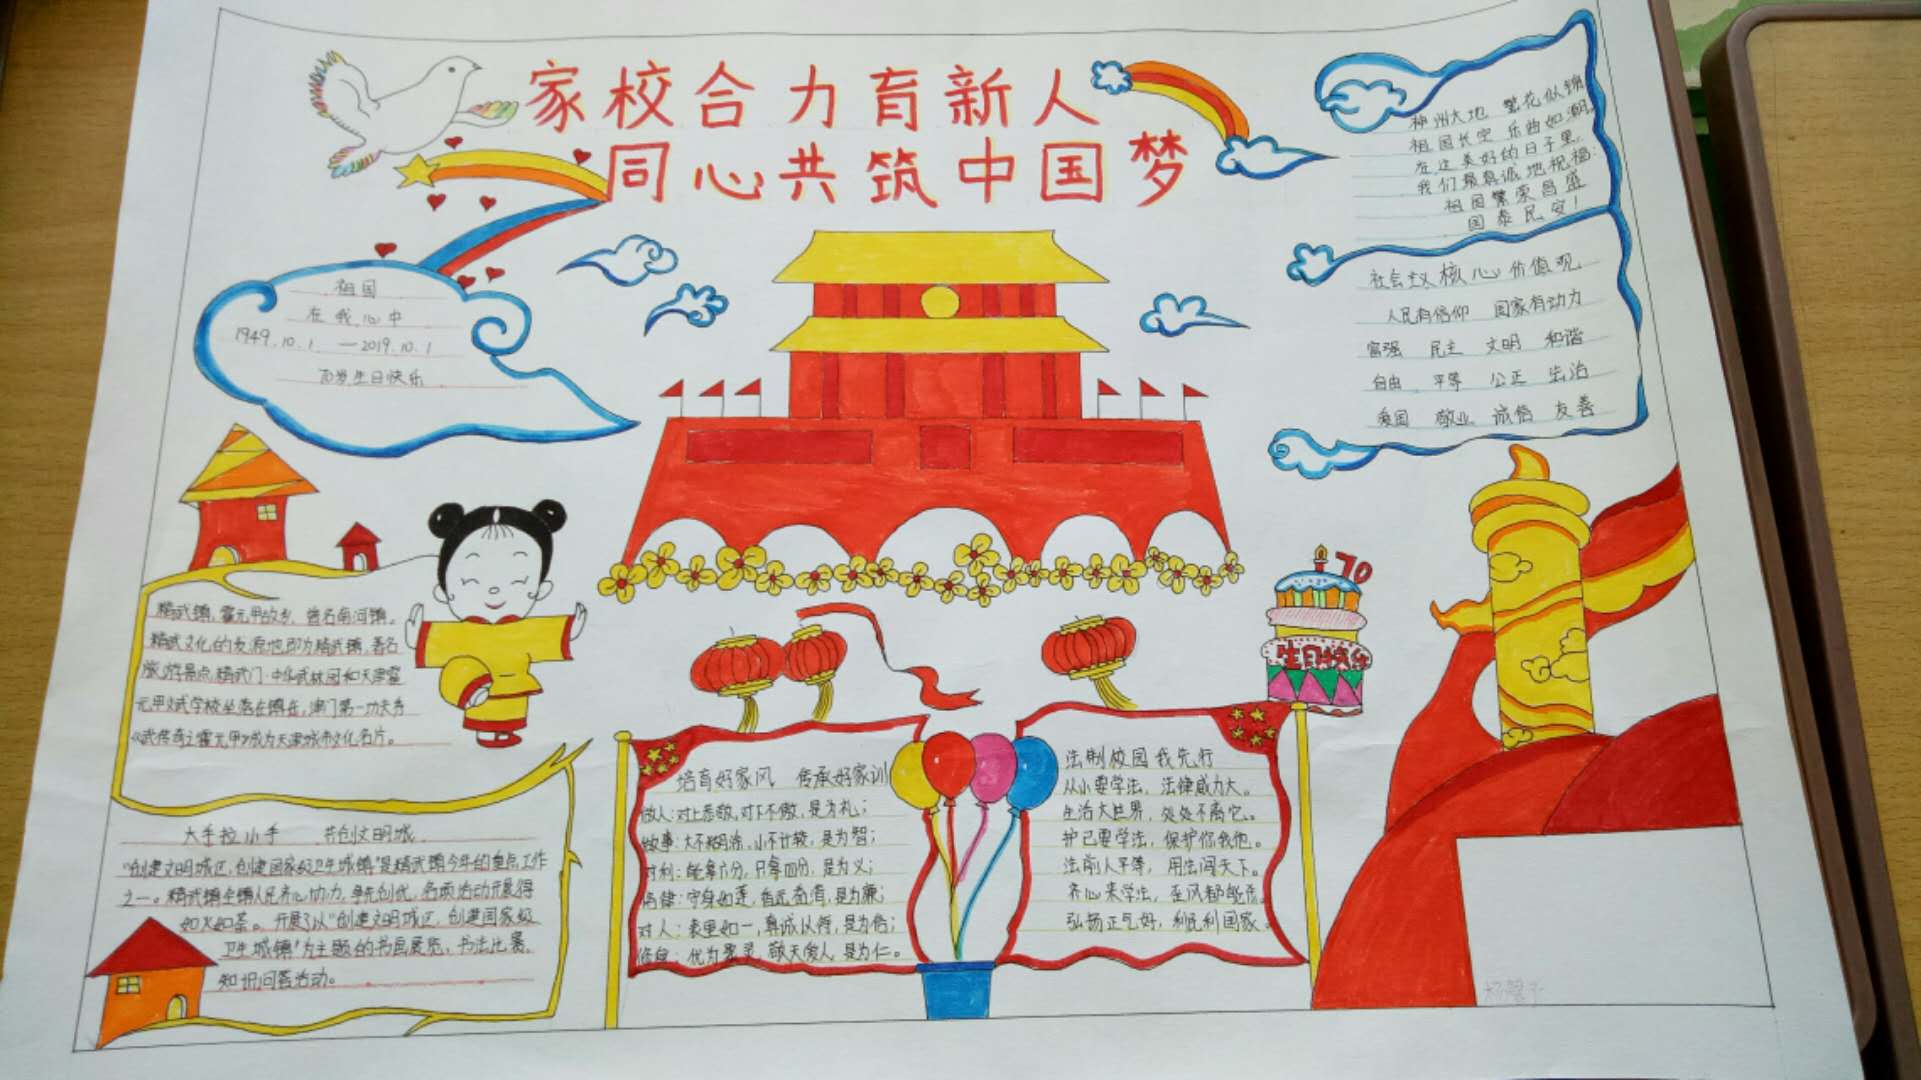 家校合力育新人
同心共筑中国梦
神州大地 繁花似锦
祖国长空 乐曲如潮
在这美好的日子里
我们最真诚地祝福:
祖国繁荣昌盛
国泰民安!
祖国
在我心中
1949.10.1 —2019.10.1
70岁生日快乐
社会主义核心价值观
人民有信仰 国家有动力
富强 民主 文明 和谐
自由 平等 公正 法治
爱国 敬业 诚信 友善
70
生日快乐
精武镇,霍元甲故乡,曾名南河镇。
精武文化的发源地即为精武镇,著名
旅游景点,精武门·中华武林园和天津霍
元甲文武学校坐落在镇在,津门第一功夫秀
《武传奇之霍元甲》成为天津城市文化名片。
大手拉小手 共创文明城
“创建文明城区,创建国家级卫生城镇”是精武镇今年的重点工作
之一。精武镇全镇人民齐心协力,争先创优,各项活动开展得
如火如荼。开展了以“创建文明城区,创建国家级
卫生城镇”为主题的书画展览,书法比赛,
知识问答活动。
培育好家风 传承好家训
做人:对上恭敬,对下不傲,是为礼;
做事:大不糊涂,小不计较,是为智;
对利:能拿六分,只拿四分,是为义;
律:守身如莲,香远益清,是为廉;
对人:表里如一,真诚以待,是为信;
修自:优为聚灵,敬天爱人,是为仁。
法制校园我先行
从小要学法,法律威力大。
生活大世界,处处不离它。
护己要学法,保护你我他。
法前人平等,用法闯天下。
齐心来学法,歪风都能
弘扬正气好,利民利国家。